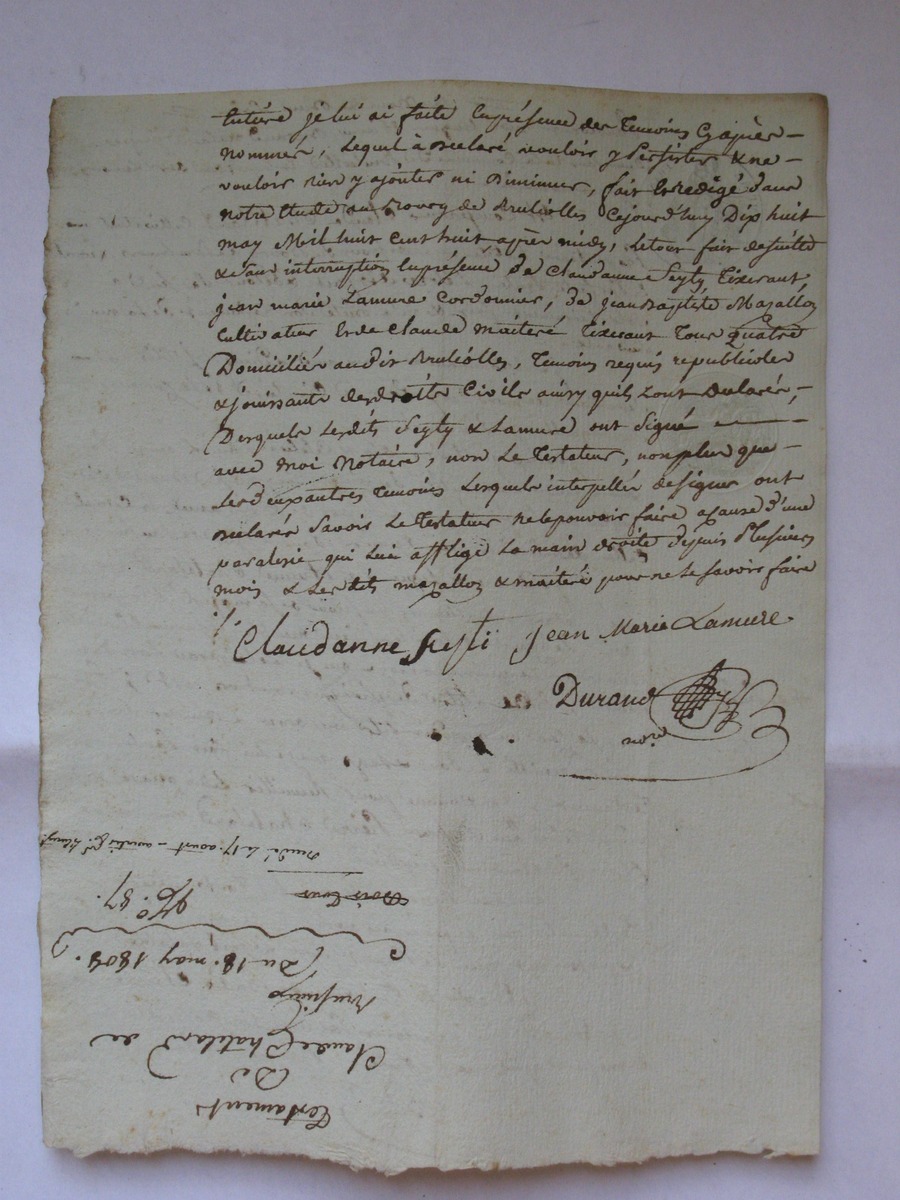 teure je lui ai faite En présence des Temoins Cy après –
nommés, Lequel à Declaré vouloir y Persister & ne –
vouloir Rien y ajouter ni Diminuer, fait Et redigé dans
notre Etude au Bourg de Brulioles Cejourd'huy Dix huit
may Mil huit Cent huit après midy, Le tout fait de suitte
& sans interruption En présence de Claudanne Seyty Tixerant,
jean marie Lamure Cordonnier, de jean Baptiste Mazallon
Cultivateur Et de Claude maiteré Tixerant Tous quatre
Domiciliés audit Brulioles, Temoins requis republicoles
& jouissants des droits Civils ainsy qu'ils L'ont Declarés, –
Desquels Lesdits Seyty & Lamure ont Signé
avec Moi Notaire, non Le Testateur, non plus que –
Les deux autres Temoins Lesquels interpellés de signer ont
Declarés Savoir Le Testateur ne le pouvoir faire a cause d'une
paralesie qui Lui afflige La main droite depuis Plusieurs
mois & Lesdits mazallon & maiteré pour ne Le savoir faire
Claudanne Seyti Jean Marie Lamure
Durand
nore
Testament
De
Claude Chatelard de
Du 18. may 1808.
No. 87.
le 17. aout –